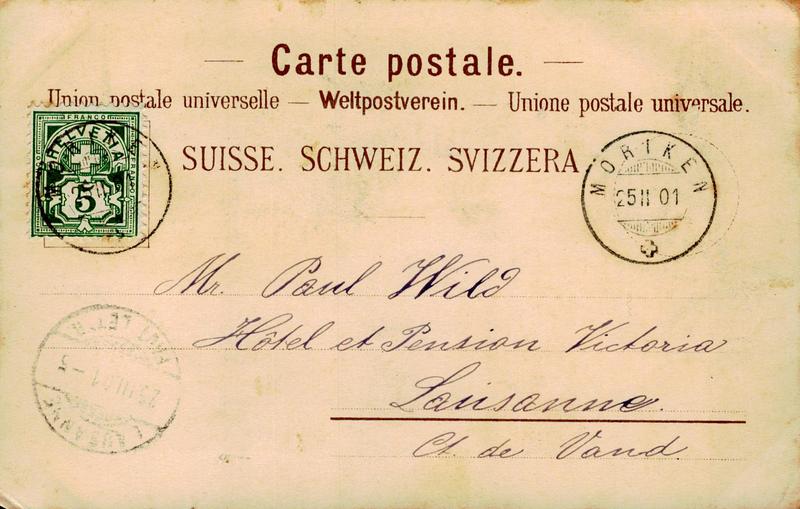 Carte postale.
Union postale universelle — Weltpostverein. — Unione postale universale.
SUISSE. SCHWEIZ. SVIZZERA
FRANCO
HELVETIA
5
MORIKEN
25 II 01
Mr. Paul Wild
Hôtel et Pension Victoria
Lausanne.
Ct. de Vaud.
LAUSANNE